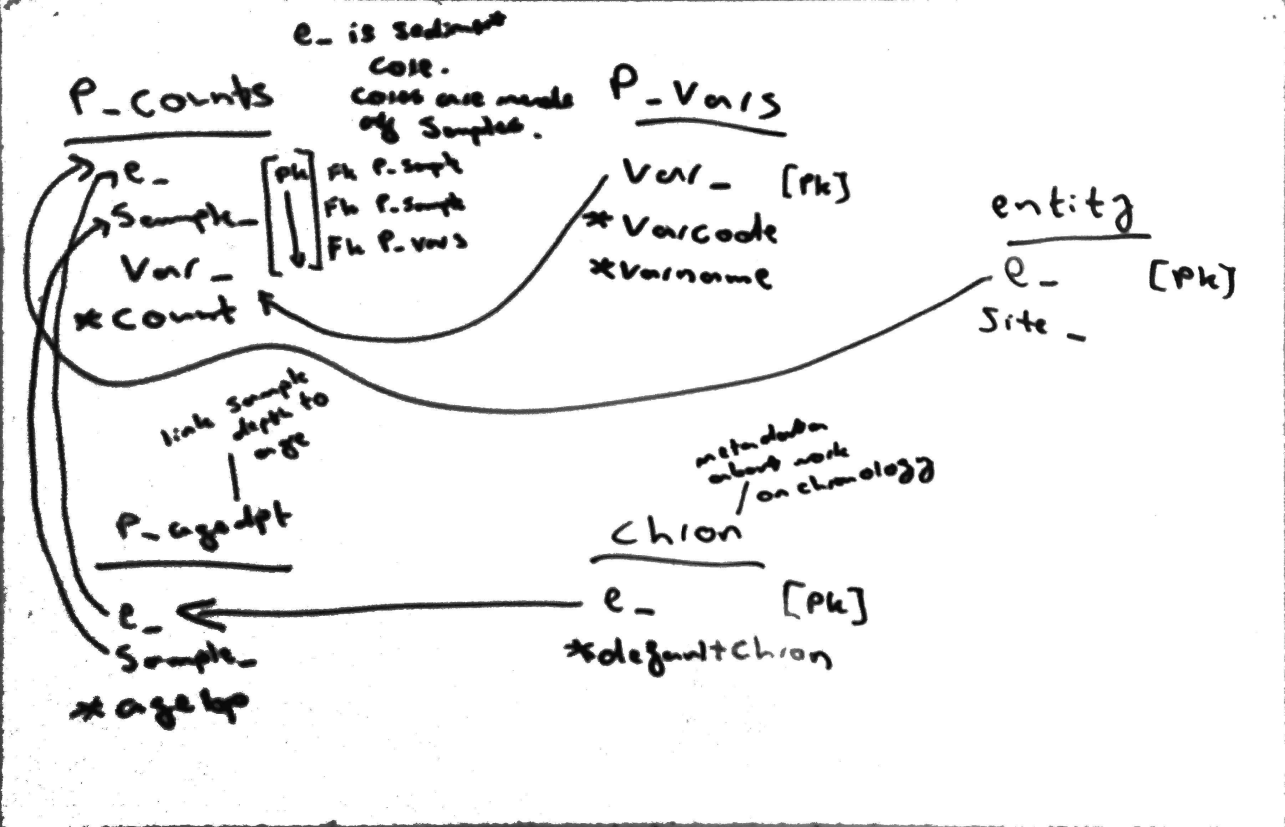 e_ is sediment
core.
cores are made
of Samples.
P_counts
e_
Sample_
Var_
*count
[PK]
Fk P_sampl
Fk P_sample
Fk P_vars
P_Vars
Var_ [PK]
*Varcode
*Varname
entity
e_ [PK]
Site_
link sample
depth to
age
P_agedpt
e_
Sample_
*agebp
metadata
about work
on chronology
Chron
e_ [PK]
*defaultchron